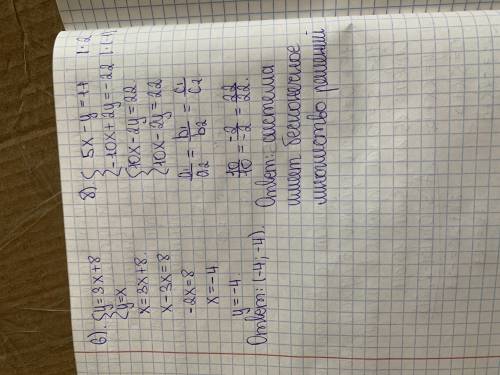 6). { y = 3x + 8
{ y = x
x = 3x + 8.
x - 3x = 8
-2x = 8
x = -4
y = -4.
Ответ: (-4; -4).
8) { 5x - y = 11 |·2
{ -10x + 2y = -22 |·(-1)
{ 10x - 2y = 22
{ 10x - 2y = 22
a₁/a₂ = b₁/b₂ = c₁/c₂
10/10 = -2/-2 = 22/22.
Ответ: система
имеет бесконечное
множество решений